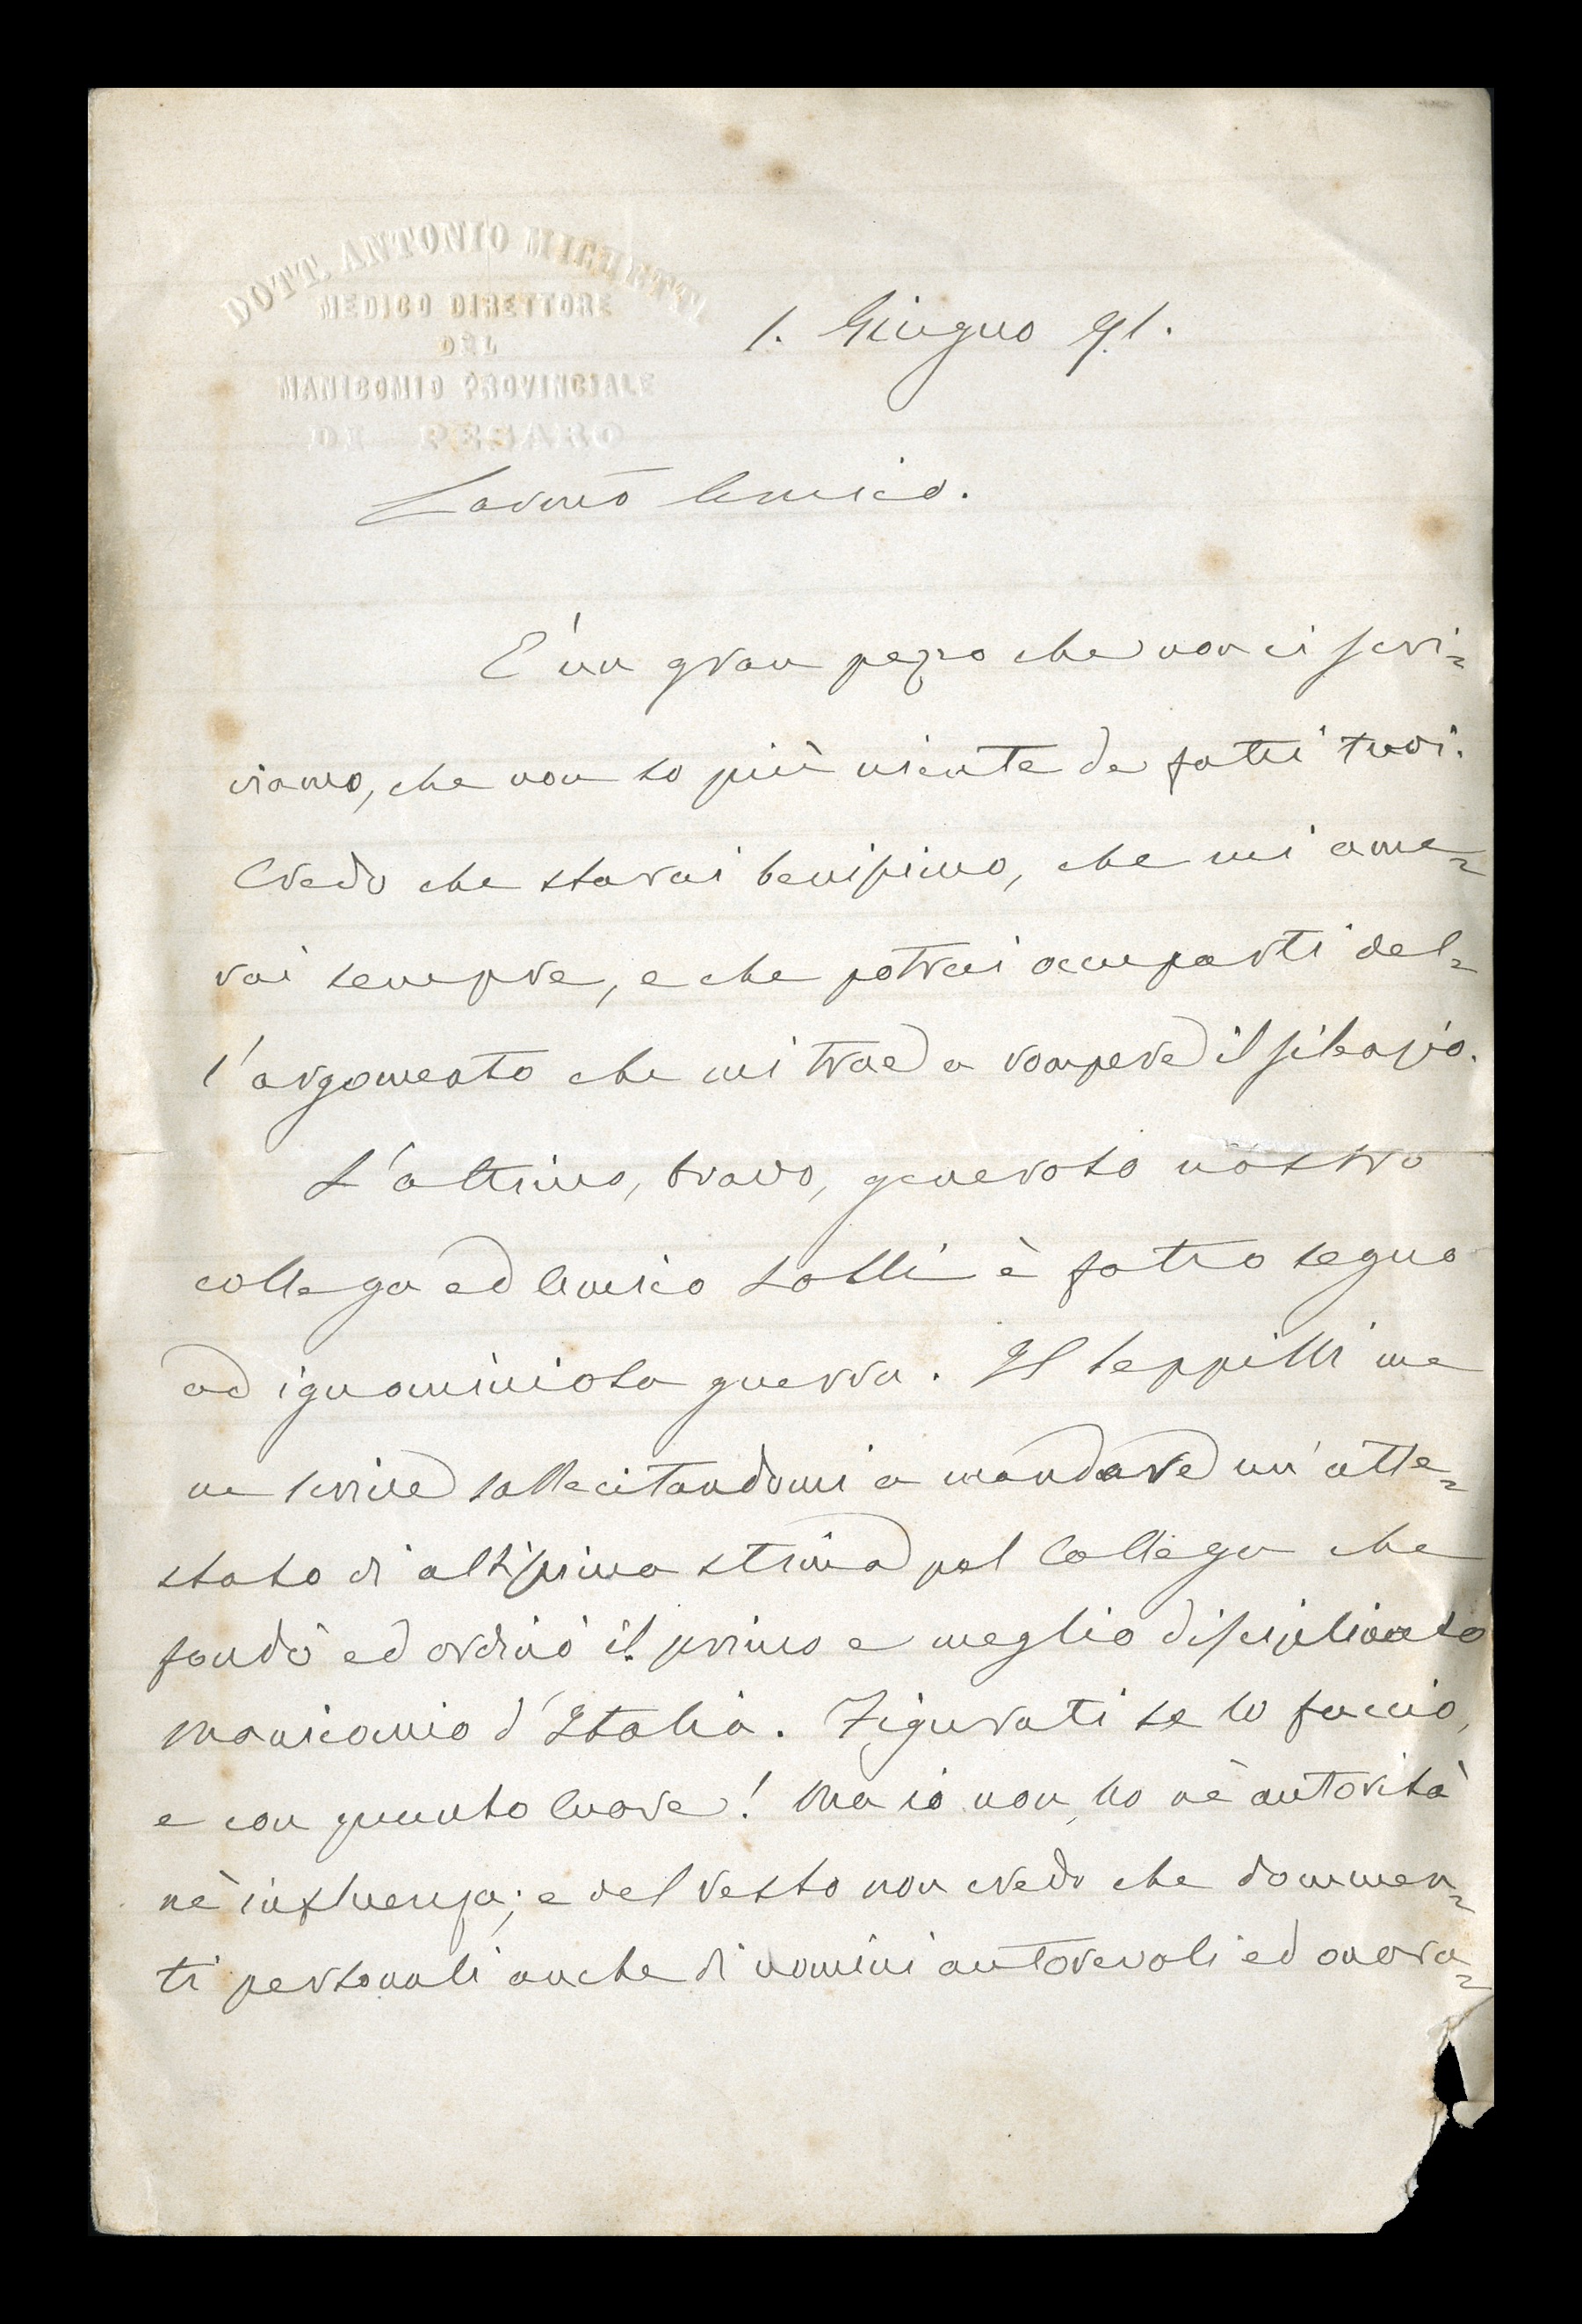 DOTT. ANTONIO MICHETTI
MEDICO DIRETTORE
DEL
MANICOMIO PROVINCIALE
DI PESARO
1. Giugno 91.
Amico.
E' un gran pezzo che non ci scri-
viamo, che non so più niente de fatti tuoi.
Credo che starai benissimo, che mi ame-
rai sempre, e che potrai occuparti del-
l'argomento che mi trae a rompere il silenzio.
L'ottimo, bravo, generoso nostro
collega ed Amico Lolli è fatto segno
ad ignominiosa guerra. Il Seppilli me
ne scrive sollecitandomi a mandare un' atte-
stato di altissima stima pel Collega che
fondò ed ordinò il primo e meglio disciplinato
Manicomio d'Italia. Figurati se lo faccio,
e con quanto Cuore! Ma io non ho nè autorità
nè influenza; e del resto non credo che documen-
ti personali anche di uomini autorevoli ed onora-